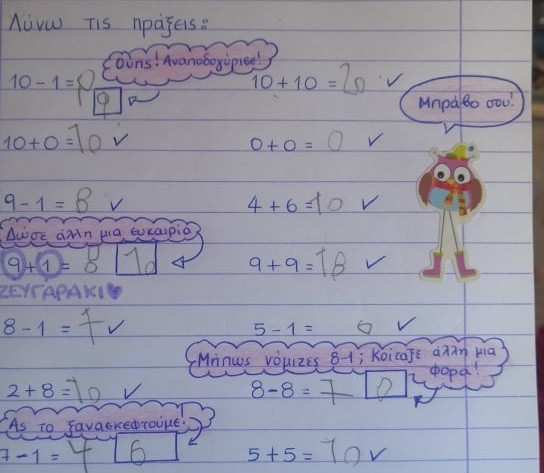 Λύνω τις πράξεις:
Ούπς! Αναποδογύρισε!
10 - 1 = 9 10 + 10 = 20 ✓
Μπράβο σου!
10 + 0 = 10 ✓ 0 + 0 = 0 ✓
9 - 1 = 8 ✓ 4 + 6 = 10 ✓
Δώσε άλλη μια ευκαιρία
9 + 1 = 8 10 9 + 9 = 18 ✓
ΖΕΥΓΑΡΑΚΙ ♥
8 - 1 = 7 ✓ 5 - 1 = ✓
Μήπως νόμιζες 8-1; Κοίταξε άλλη μια φορά!
2 + 8 = 10 ✓ 8 - 8 = 7 0
Ας το ξανασκεφτούμε!
7 - 1 = 4 6 5 + 5 = 10 ✓